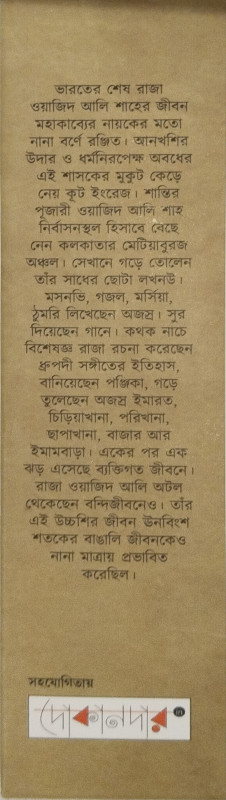 ভারতের শেষ রাজা
ওয়াজিদ আলি শাহের জীবন
মহাকাব্যের নায়কের মতো
নানা বর্ণে রঞ্জিত। আনখশির
উদার ও ধর্মনিরপেক্ষ অবধের
এই শাসকের মুকুট কেড়ে
নেয় কূট ইংরেজ। শান্তির
পূজারী ওয়াজিদ আলি শাহ
নির্বাসনস্থল হিসাবে বেছে
নেন কলকাতার মেটিয়াবুরজ
অঞ্চল। সেখানে গড়ে তোলেন
তাঁর সাধের ছোটা লখনউ।
মসনভি, গজল, মর্সিয়া,
ঠুমরি লিখেছেন অজস্র। সুর
দিয়েছেন গানে। কথক নাচে
বিশেষজ্ঞ রাজা রচনা করেছেন
ধ্রুপদী সঙ্গীতের ইতিহাস,
বানিয়েছেন পঞ্জিকা, গড়ে
তুলেছেন অজস্র ইমারত,
চিড়িয়াখানা, পরিখানা,
ছাপাখানা, বাজার আর
ইমামবাড়া। একের পর এক
ঝড় এসেছে ব্যক্তিগত জীবনে।
রাজা ওয়াজিদ আলি অটল
থেকেছেন বন্দিজীবনেও। তাঁর
এই উচ্চশির জীবন ঊনবিংশ
শতকের বাঙালি জীবনকেও
নানা মাত্রায় প্রভাবিত
করেছিল।
সহযোগিতায়
দোকানদার